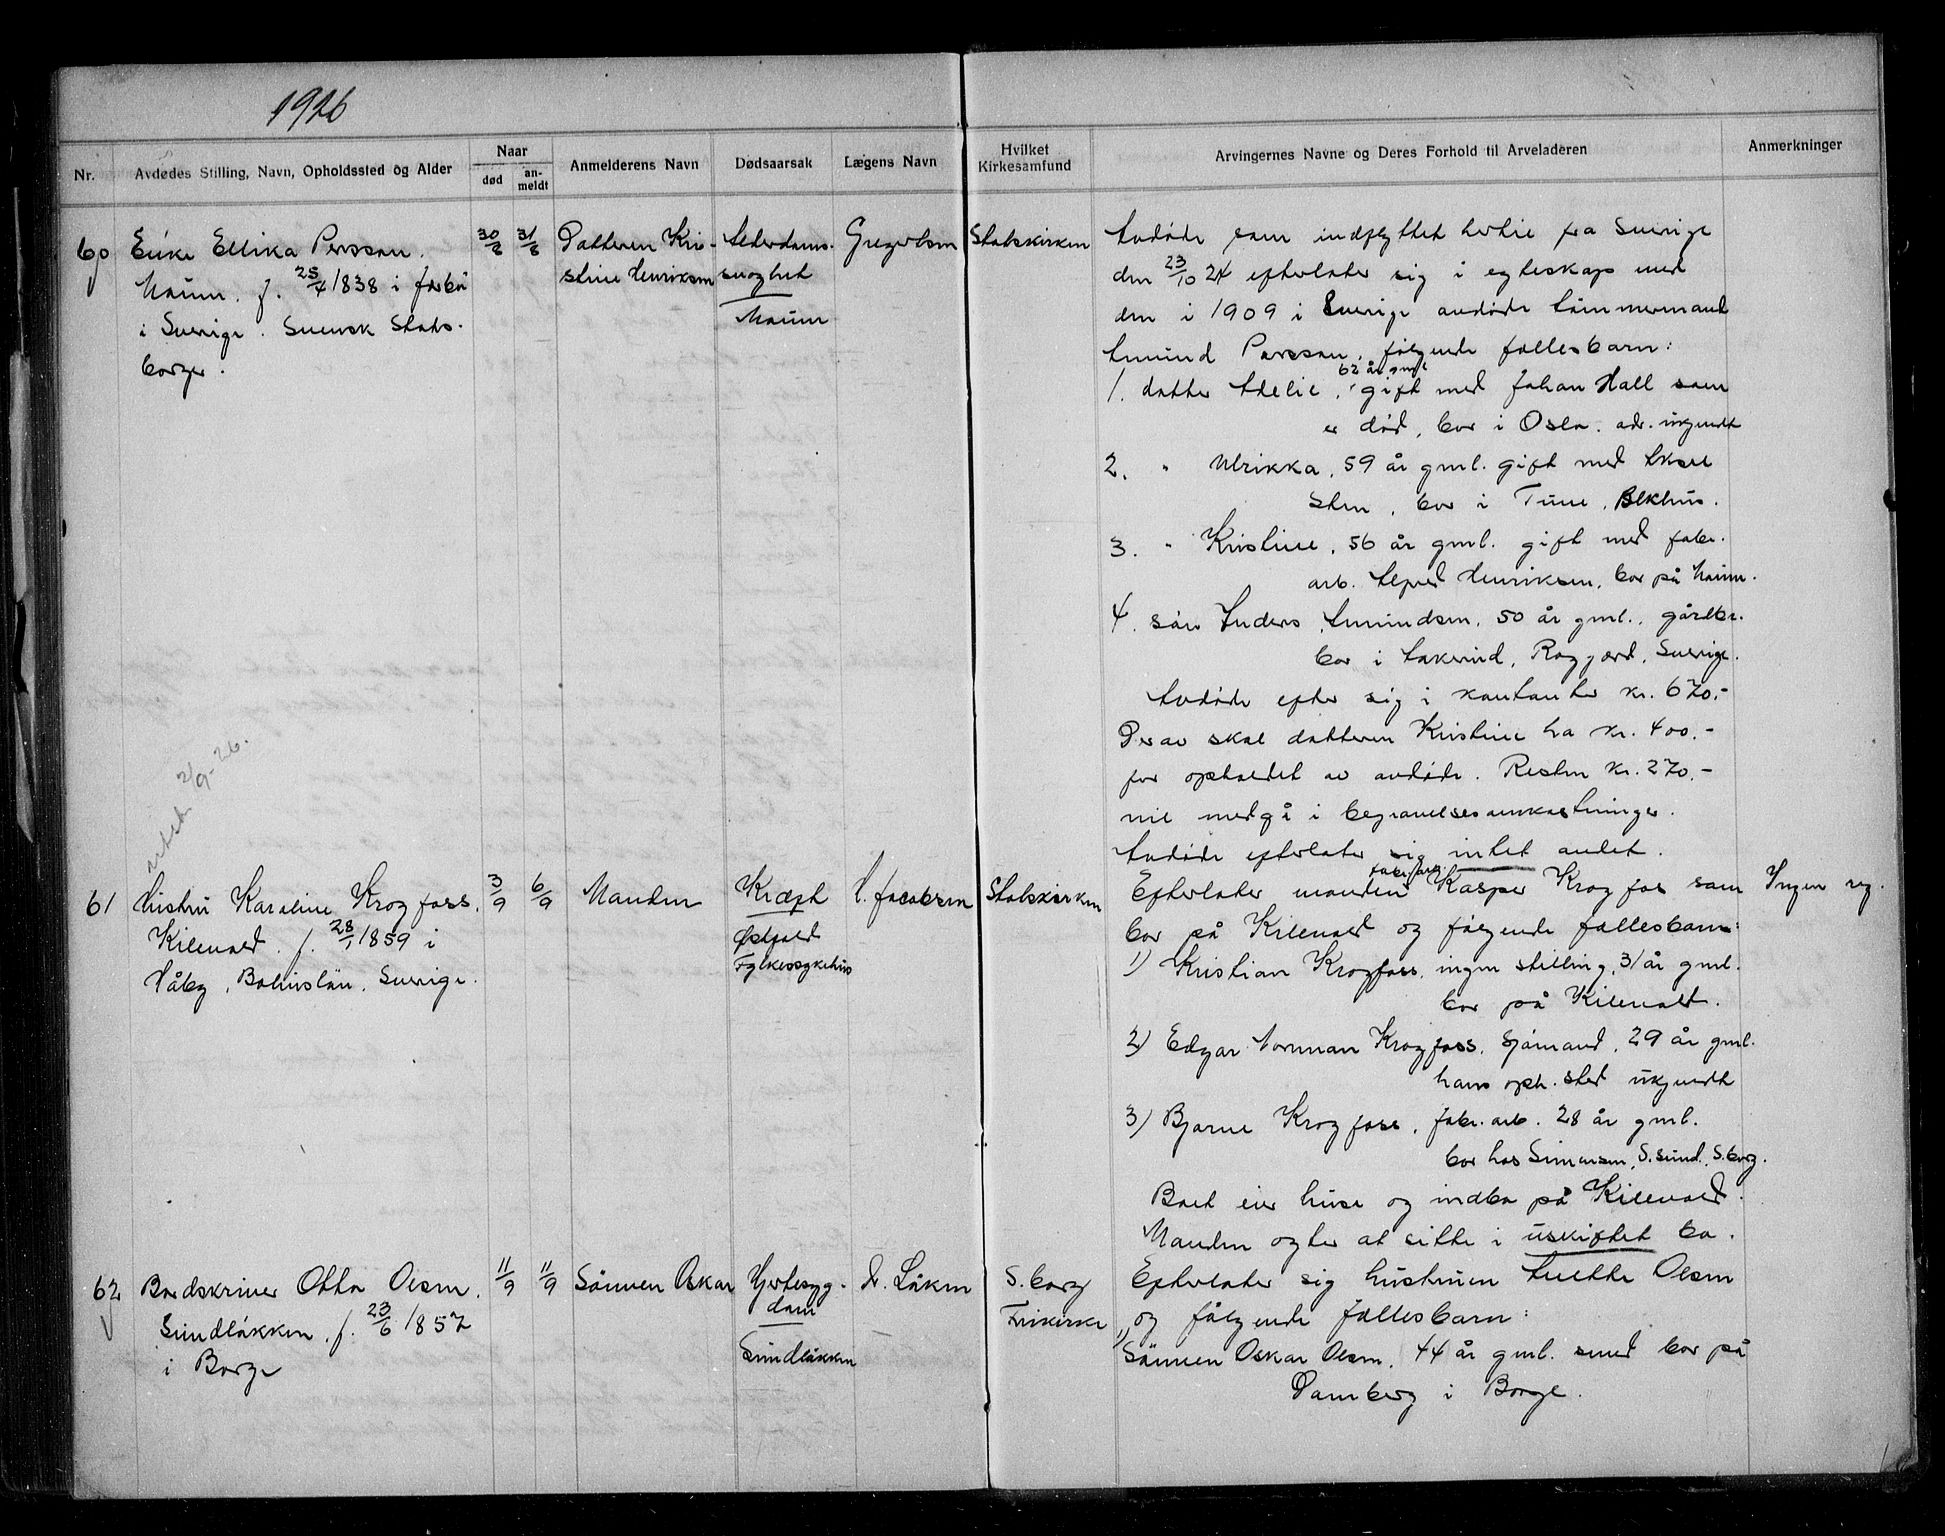 1926
Nr.
Avdødes Stilling, Navn, Opholdssted og Alder
Naar
død
an-
meldt
Anmelderens Navn
Dødsaarsak
Lægens Navn
Hvilket
Kirkesamfund
Arvingernes Navne og Deres Forhold til Arveladeren
Anmerkninger
60
Enke Ellika Persson.
Naum. f. 25/4 1838 i
i Sverige. Svensk Stats-
borger.
30/8
31/8
Datteren Kri-
stine Henriksen
Alderdoms-
svaghet
Naum
Gregertsen
Statskirken
Avdøde som indflyttet hertil fra Sverige
den 23/10 24 efterlater sig i egteskap med
den i 1909 i Sverige avdøde tømmermand
Amund Persson, følgende fællesbarn:
62 år gml
1. datter Adelie, gift med Johan Hall som
er død, bor i Oslo. adr. ukjendt
2. " Ulrikka, 59 år gml. gift med Aksel
Sten, bor i Tune, Alkhus.
3. " Kristine, 56 år gml. gift med fabr.
arb. Alfred Henriksen, bor på Naum.
4. søn Anders Amundsen, 50 år gml., gårdbr.
bor i, Sverige.
Avdøde efter sig i kontanter kr. 670.-
Derav skal datteren Kristine ha kr. 400.-
for opholdet av avdøde. Resten kr. 270.-
vil medgå i begravelsesomkostninger.
Avdøde efterlater sig intet andet.
attest 2/9-26.
61
Hustru Karoline Krogfoss,
Kilevold. f. 28/1 1859 i
Håby, Bohuslän, Sverige.
3/9
6/9
Manden
Kræft
Østfold
Fylkessykehus
Jacobsen
Statskirken
fabr.arb.
Efterlater manden Kasper Krogfos som
bor på Kilevold og følgende fællesbarn:
1) Kristian Krogfoss, ingen stilling, 31 år gml.
bor på Kilevold.
2) Edgar Norman Krogfoss, Sjømand, 29 år gml.
hans oph. sted ukjendt
3) Bjarne Krogfoss, fabr. arb. 28 år gml.
bor hos Simonsen, S. sund, S.borg.
Boet eier huse og indbo på Kilevold.
Manden agter at sitte i uskiftet bo.
Ingen reg.
62
Bordskriver Otto Olsen,
Sundløkken, f. 23/6 1857
i Borge
11/9
11/9
Sønnen Oskar
Hjertesyg-
dom
Sundløkken
dr. Løken
S. borg
Frikirke
Efterlater sig hustruen Anette Olsen
og følgende fællesbarn:
1) Sønnen Oskar Olsen, 44 år gml. smed bor på
Damberg i Borge.